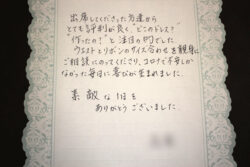 出席してくださった方達から
とても評判が良く、"どこのドレス？
"作ったの？"と注目の的でした
ウエストとリボンのサイズ合わせを親身に
ご相談にのってくださり、コロナで不安しか
なかった毎日に喜びが生まれました。
素敵な1日を
ありがとうございました。